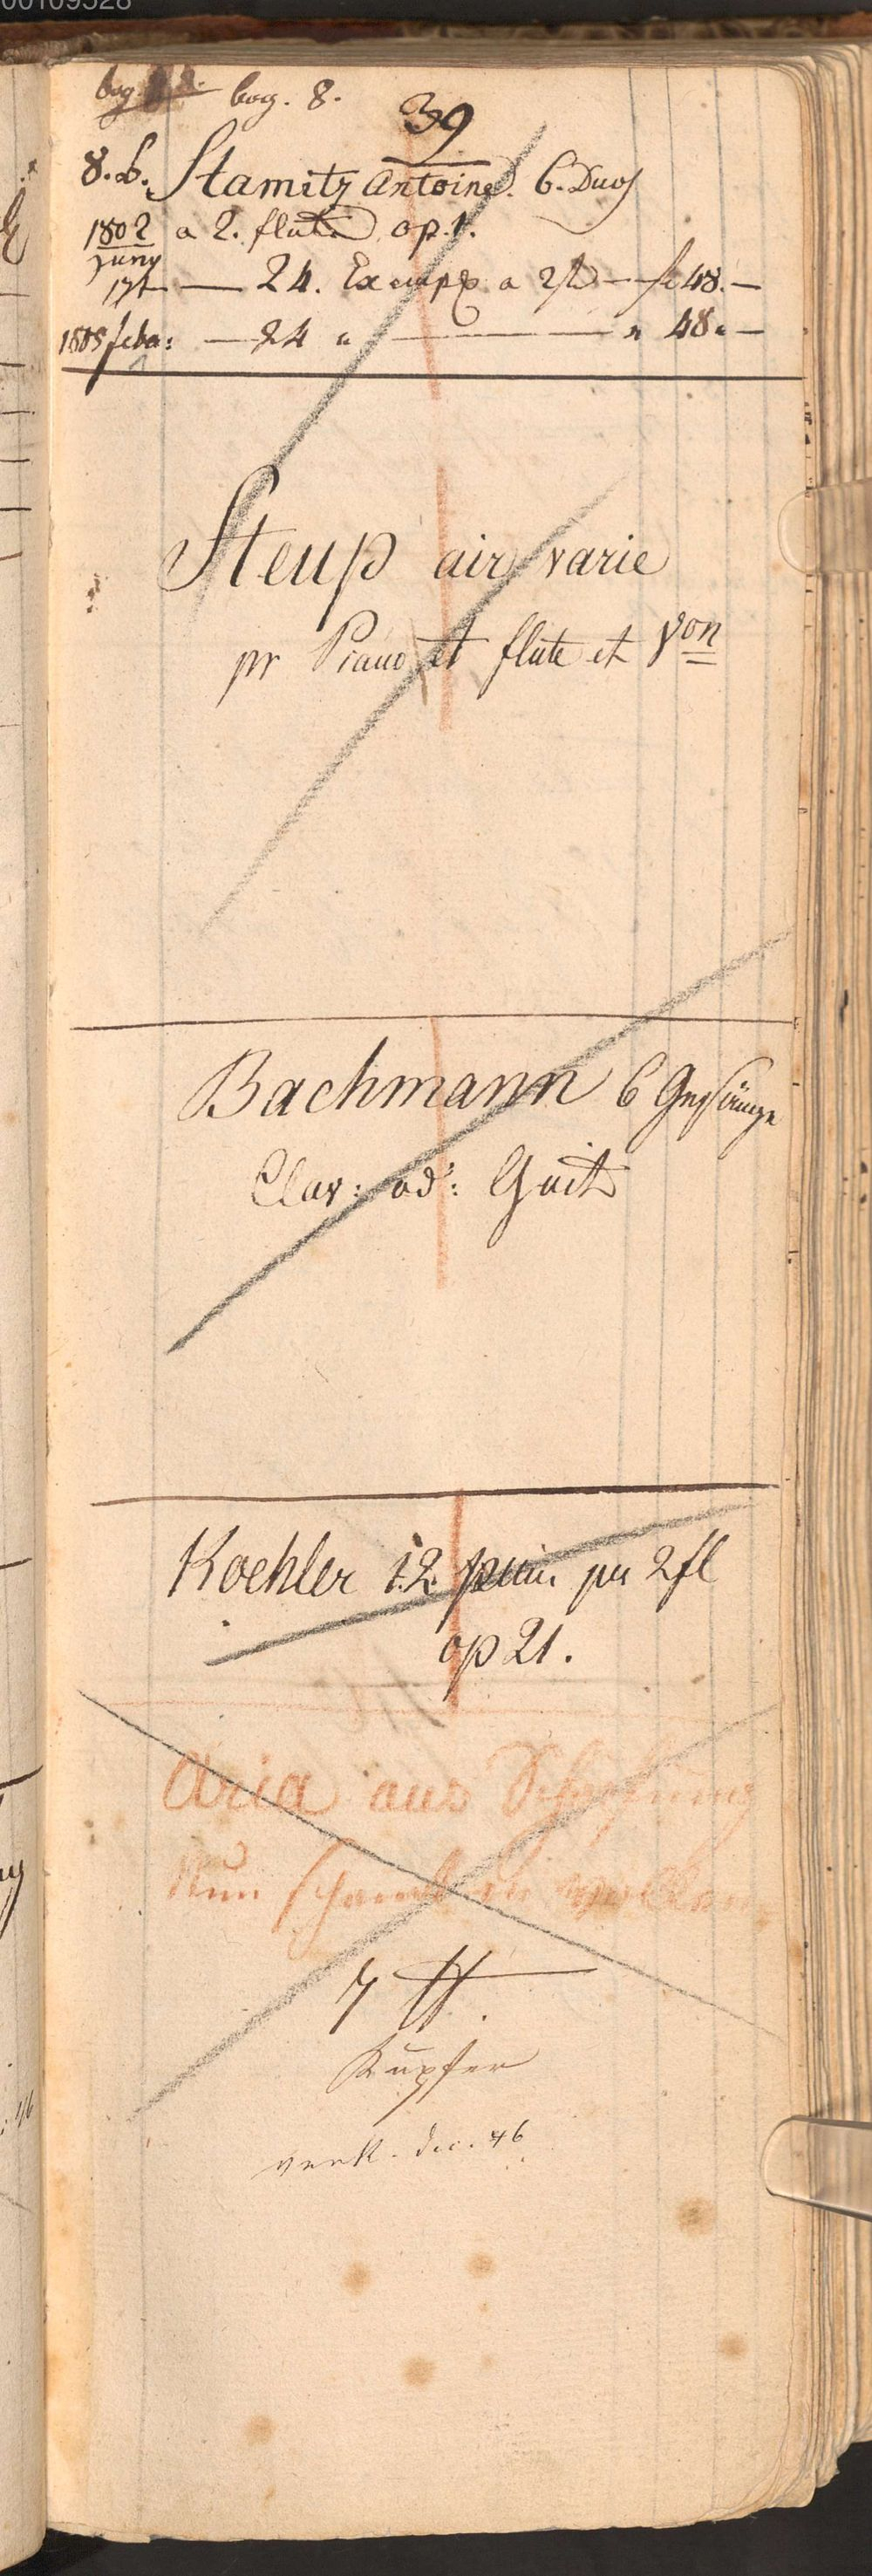 00109528
bog. 8.
39
8. b. Stamitz Antoine. 6. Duos
1802 a 2. flute op. 1.
Juny
17t — 24. Exempl a 2f — f 48. —
1805 feba: — 24 " — " 48 " —
Steup air varie
pr Piano et flute et Von
Bachmann 6 Gesänge
Clav: od: Guit
Koehler 12 pr 2 fl
op 21.
Aria aus Schöpfung
Nun scheint in vollem
7 ₶.
Kupfer
verk. dec. 46